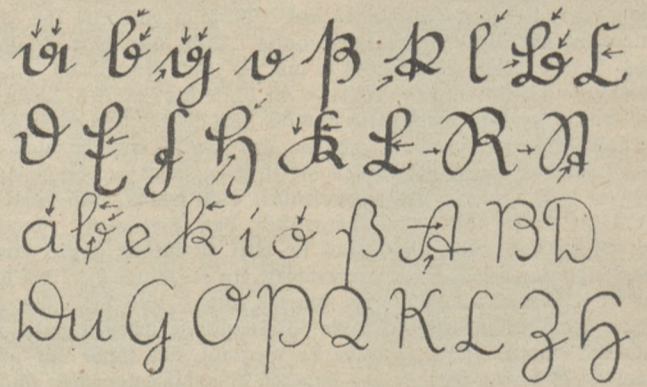 b g v ß R l L L
D E f H K L R A
a b e k i o ß A B D
D u G O P Q K L Z H